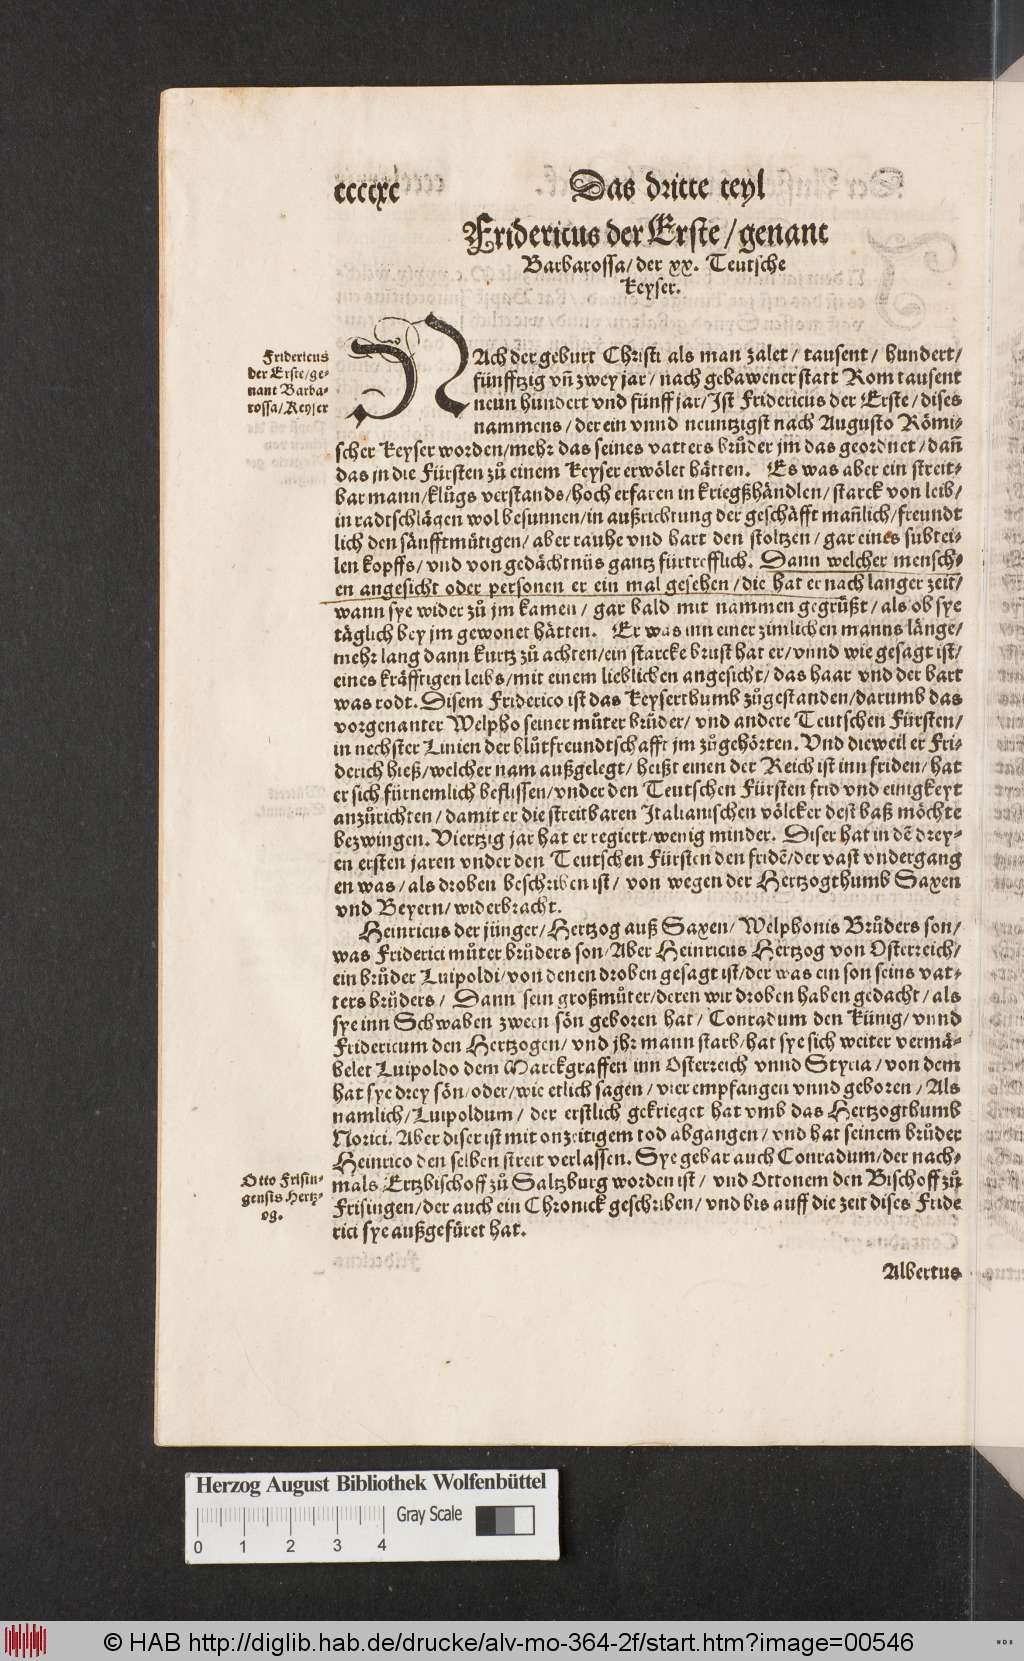 ccccxc
Das dritte teyl
Fridericus der Erste/genant
Barbarossa/ der xx. Teutsche
Keyser.
Fridericus
der Erste/ge-
nant Barba-
rossa/Keyser
NAch der geburt Christi als man zalet/ tausent/ hundert/
fünfftzig vñ zwey jar/ nach gebawener statt Rom tausent
neun hundert vnd fünff jar/Ist Fridericus der Erste/ dises
nammens/ der ein vnnd neuntzigst nach Augusto Römi-
scher Keyser worden/mehr das seines vatters brůder jm das geordnet/ dañ
das jn die Fürsten zů einem Keyser erwölet hätten. Es was aber ein streit-
bar mann/klůgs verstands/hoch erfaren in kriegßhändlen/ starck von leib/
in radtschlägen wol besunnen/in außrichtung der geschäfft mañlich/freundt
lich den sänfftmütigen/ aber rauhe vnd hart den stoltzen/ gar eines subtei-
len kopffs/ vnd von gedächtnüs gantz fürtrefflich. Dann welcher mensch-
en angesicht oder personen er ein mal gesehen/die hat er nach langer zeit/
wann sye wider zů jm kamen/ gar bald mit nammen gegrüßt/ als ob sye
täglich bey jm gewonet hätten. Er was inn einer zimlichen manns länge/
mehr lang dann kurtz zů achten/ein starcke brust hat er/vnnd wie gesagt ist/
eines kräfftigen leibs/mit einem lieblichen angesicht/ das haar vnd der bart
was rodt. Disem Friderico ist das Keyserthumb zůgestanden/darumb das
vorgenanter Welpho seiner můter brůder/ vnd andere Teutschen Fürsten/
in nechster Linien der blůtfreundtschafft jm zůgehörten. Vnd dieweil er Fri-
derich hieß/welcher nam außgelegt/ heißt einen der Reich ist inn friden/ hat
er sich fürnemlich beflissen/vnder den Teutschen Fürsten frid vnd einigkeyt
anzůrichten/ damit er die streitbaren Italianischen völcker dest baß möchte
bezwingen. Viertzig jar hat er regiert/wenig minder. Diser hat in dẽ drey-
en ersten jaren vnder den Teutschen Fürsten den fridẽ/der vast vndergang
en was/ als droben beschriben ist/ von wegen der Hertzogthumb Saxen
vnd Beyern/widerbracht.
Heinricus der jünger/Hertzog auß Saxen/ Welphonis Brůders son/
was Friderici můter brůders son/Aber Heinricus Hertzog von Osterreich/
ein brůder Luipoldi/von denen droben gesagt ist/der was ein son seins vat-
ters brůders/ Dann sein großmůter/deren wir droben haben gedacht/ als
sye inn Schwaben zween sön geboren hat/ Conradum den Künig/ vnnd
Fridericum den Hertzogen/ vnd jhr mann starb/hat sye sich weiter vermä-
helet Luipoldo dem Marckgraffen inn Osterreich vnnd Styria/ von dem
hat sye drey sön/oder/wie etlich sagen/ vier empfangen vnnd geboren/ Als
namlich/Luipoldum/ der erstlich gekrieget hat vmb das Hertzogthumb
Norici. Aber diser ist mit onzeitigem tod abgangen/ vnd hat seinem brůder
Heinrico den selben streit verlassen. Sye gebar auch Conradum/der nach-
mals Ertzbischoff zů Saltzburg worden ist/ vnd Ottonem den Bischoff zů
Frisingen/der auch ein Chronick geschriben/ vnd bis auff die zeit dises Fride
rici sye außgefüret hat.
Otto Frisin-
gensis Hertz-
og.
Albertus
Herzog August Bibliothek Wolfenbüttel
Gray Scale
0 1 2 3 4
© HAB http://diglib.hab.de/drucke/alv-mo-364-2f/start.htm?image=00546